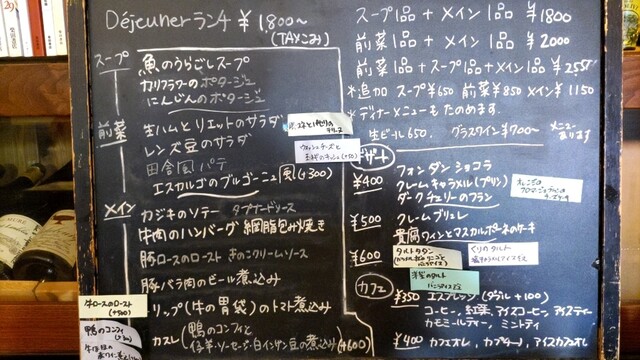 Déjeuner ランチ ¥1,800~
(TAXこみ)
スープ
魚のうらごしスープ
カリフラワーのポタージュ
にんじんのポタージュ
前菜
生ハムとリエットのサラダ
レンズ豆のサラダ
田舎風パテ
エスカルゴのブルゴーニュ風(+300)
メイン
カジキのソテー タプナードソース
牛肉のハンバーグ 網脂包み焼き
豚ロースのロースト きのこクリームソース
豚バラ肉のビール煮込み
トリップ(牛の胃袋)のトマト煮込み
カスレ(鴨のコンフィと
仔羊・ソーセージ・白インゲン豆の煮込み)(+600)
牛ロースのロースト
(+500)
鴨のコンフィ
スープ1品 + メイン1品 ¥1800
前菜1品 + メイン1品 ¥2000
前菜1品+スープ1品+メイン1品 ¥2550
*追加 スープ¥650 前菜¥850 メイン¥1150
*ディナーメニューもたのめます。
生ビール650. グラスワイン¥700~ メニューあります
デザート
¥400
フォンダンショコラ
クレームキャラメル(プリン)
ダークチェリーのフラン
¥500
クレームブリュレ
貴腐ワインとマスカルポーネのケーキ
¥600
タルトタタン
くりのタルト
洋梨のタルト
カフェ
¥350 エスプレッソ(ダブル+100)
コーヒー, 紅茶, アイスコーヒー, アイスティー
カモミールティー, ミントティ
¥400 カフェオレ, カプチーノ, アイスカフェオレ